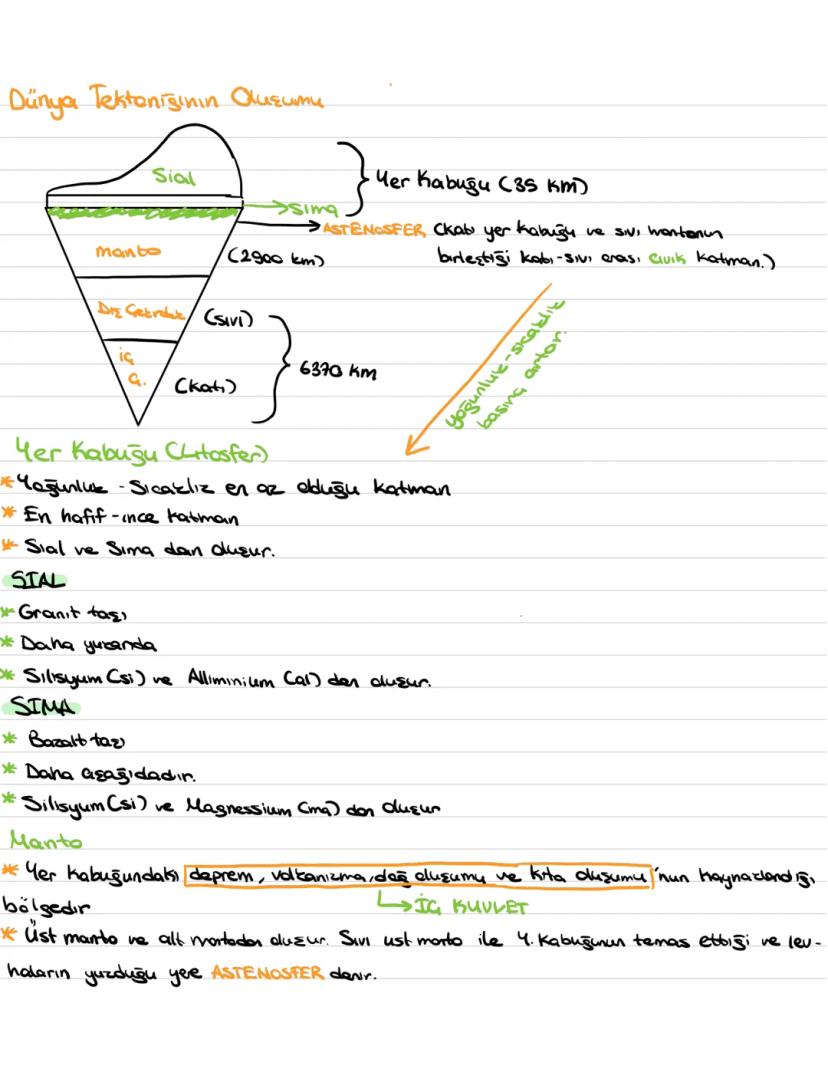 Dünya Tektoniğinin Oluşumu
Sial
Yer Kabuğu (35 km)
Sima
ASTENOSFER (katı yer kabuğu ve sıvı mantonun
birleştiği katı-sıvı arası cıvık katman.)
manto
(2900 km)
Dış Çekirdek
(sıvı)
iç
Ç.
(katı)
6370 km
yoğunluk - sıcaklık
basınç artar.
Yer Kabuğu (Litosfer)
* Yoğunluk - Sıcaklız en az olduğu katman
* En hafif - ince katman
* Sial ve Sima dan oluşur.
SIAL
* Granit taşı
* Daha yukarıda
* Silisyum (si) ve Alliminium (al) dan oluşur.
SIMA
* Bazalt taşı
* Daha aşağıdadır.
* Silisyum (si) ve Magnessium (ma) dan oluşur
Manto
* Yer kabuğundaki deprem, volkanizma, dağ oluşumu ve kıta oluşumu 'nun kaynaklandığı
bölgedir
İÇ KUVVET
* Üst manto ve alt mantodan oluşur. Sıvı üst manto ile Y. Kabuğunun temas ettiği ve lev-
haların yüzdüğü yere ASTENOSFER denir.